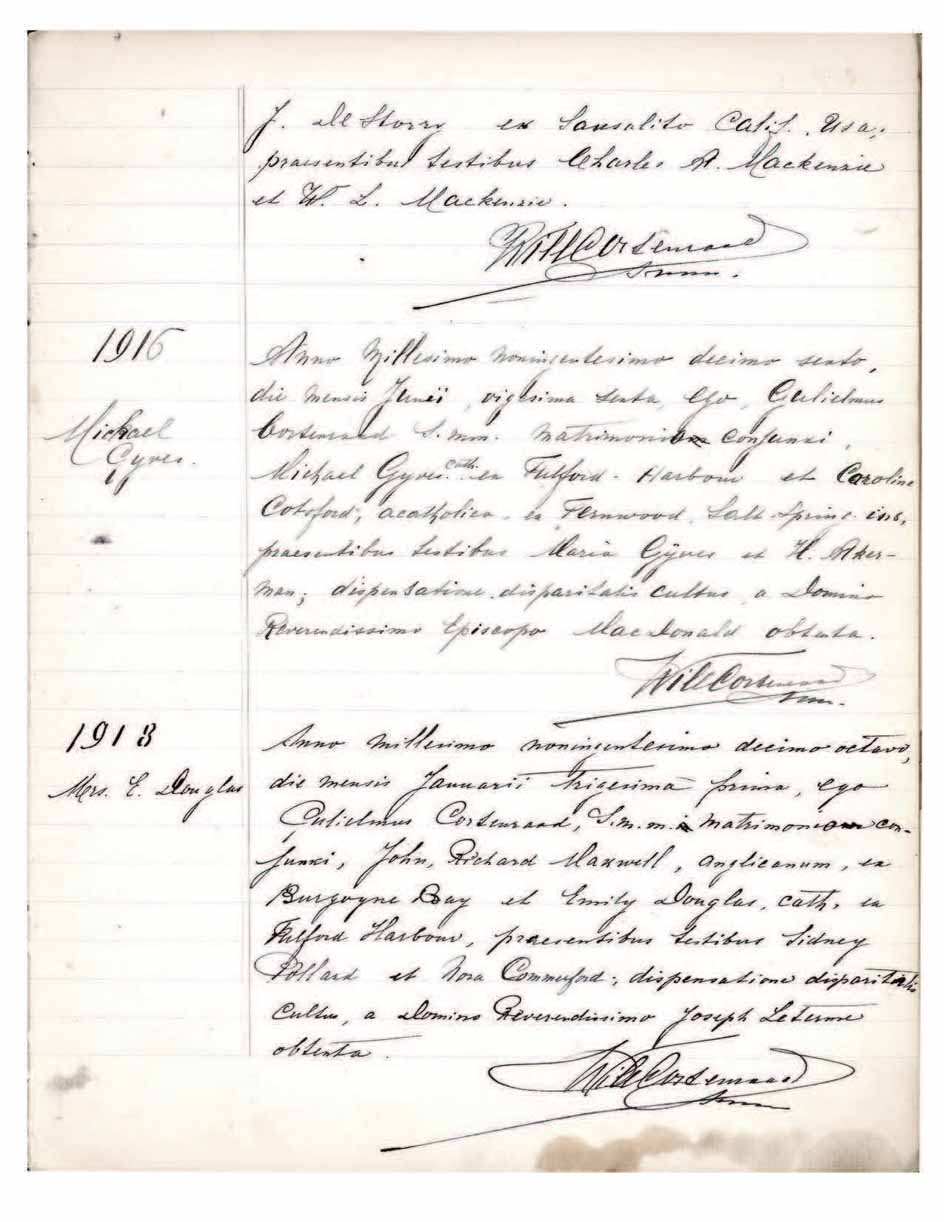 J. De Storry ex Sausalito Calif. Usa,
praesentibus testibus Charles A. Mackenzie
et W. L. Mackenzie.
Will Cortenraad
s.m.m.
1916
Anno Millesimo noningentesimo decimo sexto,
die mensis Junii, vigesima sexta, ego, Gulielmus
Michael
Cortenraad S.m.m. matrimonium conjunxi,
Gyves.
Michael Gyves cath. ex Fulford-Harbour et Caroline
Cotsford, acatholica, ex Fernwood, Salt Spring ins,
praesentibus testibus Maria Gÿves et H. Aker-
man; dispensatione disparitatis cultus a Domino
Reverendissimo Episcopo MacDonald obtenta.
Will Cortenraad
smm.
1918
Anno millesimo noningentesimo decimo octavo,
Mrs. E. Douglas
die mensis Januarii trigesima prima, ego
Gulielmus Cortenraad, S.m.m. matrimonium con-
junxi, John, Richard Maxwell, anglicanum, ex
Burgoyne Bay et Emily Douglas, cath. ex
Fulford Harbour, praesentibus testibus Sidney
Pollard et Nora Commerford; dispensatione disparitatis
cultus, a Domino Reverendissimo Joseph Leterme
obtenta.
Will Cortenraad
smm